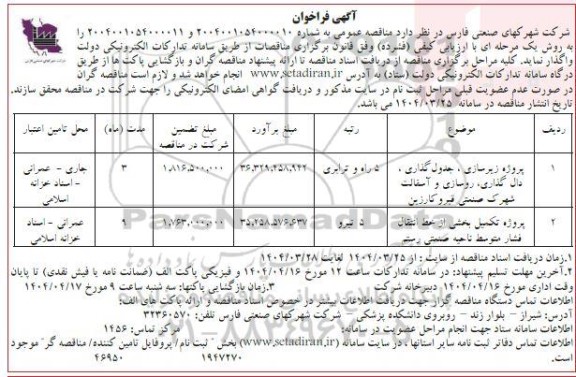 آگهی فراخوان
شرکت شهرکهای صنعتی فارس در نظر دارد مناقصه عمومی به شماره ۲۰۰۴۰۰۱۰۵۴۰۰۰۰۱۰ و ۲۰۰۴۰۰۱۰۵۴۰۰۰۰۱۱ را
به روش یک مرحله ای با ارزیابی کیفی (فشرده) وفق قانون برگزاری مناقصات از طریق سامانه تدارکات الکترونیکی دولت
واگذار نماید. کلیه مراحل برگزاری مناقصه از دریافت اسناد مناقصه تا ارائه پیشنهاد مناقصه گران و بازگشایی پاکت ها از طریق
درگاه سامانه تدارکات الکترونیکی دولت (ستاد) به آدرس www.setadiran.ir انجام خواهد شد و لازم است مناقصه گران
در صورت عدم عضویت قبلی مراحل ثبت نام در سایت مذکور و دریافت گواهی امضای الکترونیکی را جهت شرکت در مناقصه محقق سازند.
تاریخ انتشار مناقصه در سامانه ۱۴۰۴/۰۳/۲۵ می باشد.
ردیف موضوع رتبه مبلغ برآورد مبلغ تضمین شرکت در مناقصه مدت (ماه) محل تامین اعتبار
۱ پروژه زیرسازی ، جدول گذاری ، دال گذاری، روسازی و آسفالت شهرک صنعتی فیروکارزین ۵ راه و ترابری ۳۶,۳۲۹,۲۵۸,۹۴۲ ۱,۸۱۶,۵۰۰,۰۰۰ ۳ جاری – عمرانی – اسناد خزانه اسلامی
۲ پروژه تکمیل بخشی از خط انتقال فشار متوسط ناحیه صنعتی رستم ۵ نیرو ۳۵,۲۵۸,۵۷۶,۶۳۷ ۱,۷۶۳,۰۰۰,۰۰۰ ۹ عمرانی - اسناد خزانه اسلامی
۱.زمان دریافت اسناد مناقصه از سایت : از ۱۴۰۴/۰۳/۲۵ لغایت ۱۴۰۴/۰۳/۲۸
۲.آخرین مهلت تسلیم پیشنهاد: در سامانه تدارکات ساعت ۱۲ مورخ ۱۴۰۴/۰۴/۱۶ و فیزیکی پاکت الف (ضمانت نامه یا فیش نقدی) تا پایان
وقت اداری مورخ ۱۴۰۴/۰۴/۱۶ دبیرخانه شرکت ۳.زمان بازگشایی پاکتها: سه شنبه ساعت ۹ مورخ ۱۴۰۴/۰۴/۱۷
اطلاعات تماس دستگاه مناقصه گزار جهت دریافت اطلاعات بیشتر در خصوص اسناد مناقصه و ارائه پاکت های الف:
آدرس: شیراز – بلوار زند – روبروی دانشکده پزشکی – شرکت شهرکهای صنعتی فارس تلفن: ۳۲۳۶۰۵۷۰
اطلاعات سامانه ستاد جهت انجام مراحل عضویت در سامانه: مرکز تماس: ۱۴۵۶
اطلاعات تماس دفاتر ثبت نامه سایر استانها ، در سایت سامانه (www.setadiran.ir) بخش "ثبت نام/ پروفایل تامین کننده/ مناقصه گر" موجود
است. ۱۹۴۷۲۷۰ ۴۶۹۵۰